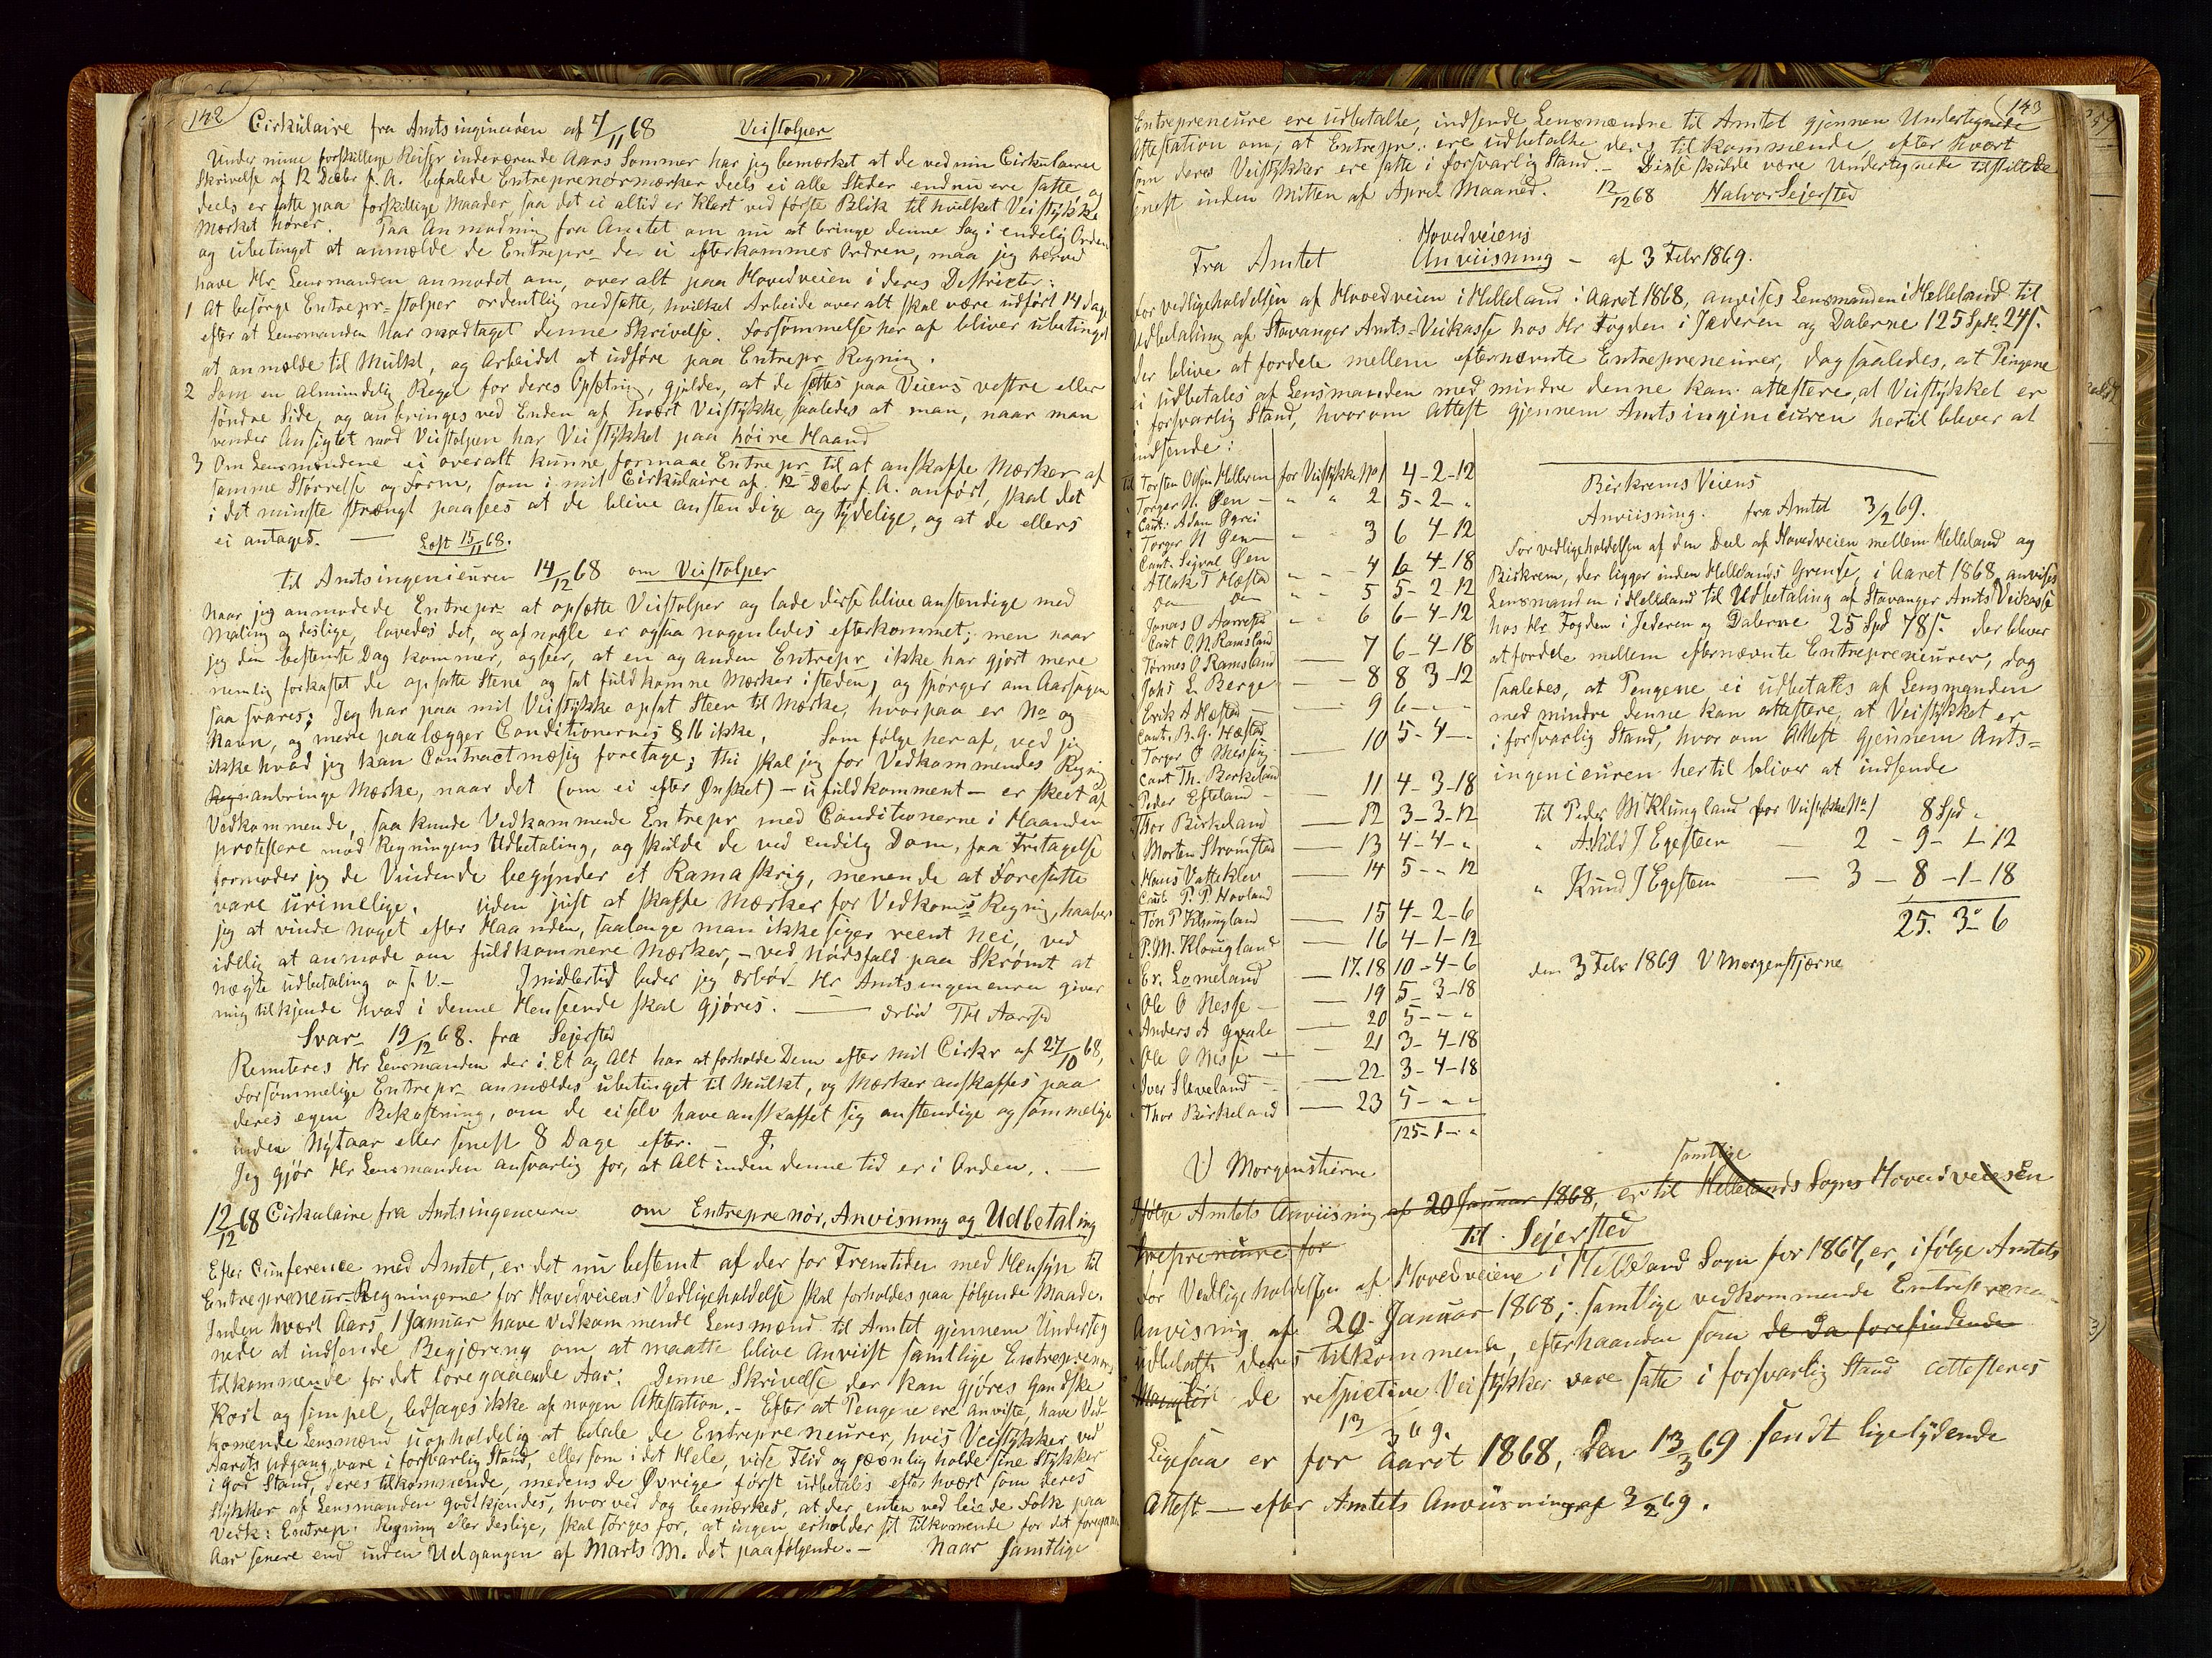 142
Cirkulaire fra Amtsingeniøren af 7/11 68 Veistolper
Under mine forskillige Reiser indeværende Aars Sommer har jeg bemærket at de ved min Cirkulaire
Skrivelse af 12 Decbr f. A. befalede Entreprenørmærker deels ei alle Steder endnu ere satte, og
deels er satte paa forskillige Maader, saa det ei altid er klart ved første Blik til hvilket Veistykke
Mærket hører. Paa Anmodning fra Amtet om nu at bringe denne Sag i endelig Orden
og ubetinget at anmelde de Entrepr_ der ei efterkommer Ordren, maa jeg herved
have Hr. Lensmanden anmodet om, overalt paa Hovedveien i deres Destricter:
1 At besørge Entrepr= stolper ordentlig nedsatte, hvilket Arbeide overalt skal være udført 14 dage
efter at Lensmanden har modtaget denne Skrivelse. Forsømmelse her af bliver ubetinget
at anmelde til Mulkt, og Arbeidet at udføre paa Entrepr Regning.
2 Som en almindelig Regel for deres Opsætning, gjelder, at de settes paa Veiens vestre eller
søndre Side, og anbringes ved Enden af hvert Veistykke, saaledes at man, naar man
vender Ansigtet mod Veistolpen har Veistykket paa høire Haand
3 Om Lensmændene ei overalt kunne formaae Entrepr_ til at anskaffe Mærker af
samme Størrelse og Form, som i mit Cirkulaire af 12 Decbr f. A. anført, skal det
i det minste strengt paasees at de blive anstendige og tydelige, og at de ellers
ei antages. — Læst 15/11 68.
til Amtsingenieuren 14/12 68 om Veistolper
Naar jeg anmodede Entrepr at opsætte Veistolper og lade disse blive anstendige med
Maling og deslige, lovedes det, og af nogle er ogsaa nogenledes efterkommet; men naar
jeg den bestemte Dag kommer, og seer, at en og anden Entrepr ikke har gjort mere
nemlig forkastet de opsatte Stene og sat fuldkomne Mærker isteden, og spørger om Aarsagen
saa svares; Jeg har paa mit Veistykke opsat Steen til Mærke, hvorpaa er No og
Navn, og mere paalægger Conditionernes § 16 ikke. Som følge her af, ved jeg
ikke hvad jeg kan Contractmæsig foretage; thi skal jeg for Vedkommendes Regning
anbringe Mærke, naar det (om ei efter Ønsket) – ufuldkomment – er skeet af
Vedkommende, saa kunde Vedkommende Entrepr med Conditionerne i Haanden
protestere mod Regningens Udbetaling, og skulde de ved endelig Dom, faa Fritagelse
formoder jeg de Vindende begynder et Ramaskrig, menende at Foresatte
vare urimelige. Uden just at skaffe Mærker for Vedkoms Regning, haaber
jeg at vinde noget efter Haanden, saalenge man ikke siger reent Nei, ved
idelig at anmode om fuldkomnere Mærker, – ved Nødsfald paa Skrømt at
nægte udbetaling o. s. v. – Imidlertid beder jeg ærbød– Hr Amtsingenieuren giver
mig tilkjende hvad i denne Henseende skal gjøres. — ærbød Th Aarstad
Svar 19/12 68. fra Sejersted
Remiteres Hr Lensmanden der i Et og Alt har at forholde Dem efter mit Cirkr af 27/10 68,
Forsømmelige Entrepr_ anmeldes ubetinget til Mulkt, og Mærker anskaffes paa
deres egen Bekostning, om de ei selv have anskaffet sig anstendige og sømmelige
inden Nytaar eller senest 8 Dage efter. –
Jeg gjør Hr Lensmanden ansvarlig for, at Alt inden denne tid er i Orden. . —
12/12 68 Cirkulaire fra Amtsingenieuren om Entreprenør, Anvisning og Udbetaling
Efter Conference med Amtet, er det nu bestemt af der for Fremtiden med Hensyn til
Entrepreneur-Regningerne for Hovedveiens Vedligeholdelse skal forholdes paa følgende Maade.
Inden hvert Aars 1 Januar have vedkommende Lensmænd til Amtet gjennem Underteg
nede at indsende Begjæreng om at maatte blive anviist samtlige Entrepreneurer
tilkommende for det foregaaende Aar: Denne Skrivelse der kan gjøres Gandske
Kort og simpel, ledsages ikke af nogen Attestation. – Efter at Pengene ere anviste, have Ved-
komende Lensmænd uopholdelig at betale de Entrepreneurer, hvis Veistykker ved
Aarets udgang vare i forsvarlig Stand, eller som i det Hele, vise Flid og jævnlig holde sine Stykker
i god Stand, deres tilkommende, medens de Øvrige først udbetales efter hvert som deres
Stykker af Lensmanden godtkjendes, hvorved dog bemærkes, at der, enten ved leiede Folk paa
Vedk: Entrep. Regning eller deslige, skal sørges for, at ingen erholder sit tilkomende for det foregaae
Aar senere end inden Udgangen af Marts M. det paafølgende. – Naar Samtlige
143
Entrepreneure ere udbetalte, indsende Lensmændne til Amtet gjennem Undertegnede
Attestation om, at Entrepr. ere udbetalte deres tilkommende, efter hvert
som deres Veistykker ere satte i forsvarlig Stand. – Disse skulde være Undertegnede tilstillede
senest inden Mitten af April Maaned. 12/12 68 Halvor Sejersted
Fra Amtet Hovedveiens
Anviisning – af 3 Febr 1869.
For vedligeholdelsen af Hovedveien i Helleland i Aaret 1868, anvises Lensmanden i Helleland til
Udbetaling af Stavanger Amts-Veikasse hos Hr Fogden i Jæderen og Dalerne 125 Spd. 24 s.
der blive at fordele mellem efternævnte Entrepreneurer, dog saaledes, at Pengene
ei udbetales af Lensmanden med mindre denne kan attestere, at Veistykket er
i forsvarlig Stand, hvorom Attest gjennem Amtsingenieuren hertil bliver at
indsende:
til Torsten Olsen Helleren for Veistykke No 1 4-2-12
Torger N. Øen – " " 2 5-2- "
Caut: Adam Øgrei
Torger N Øen – 3 6 4-12
Caut. Sigval Øen
Atlak T Hæstad " – 4 6-4-18
Do Do " " 5 5-2 12
Jonas O Aarrestad " – 6 6-4-12
Caut O. N Ramsland
Tørres O Ramsland — 7 6-4-18
Johs L. Berge — 8 8 3-12
Erik A Hæstad — 9 6 – –
Caut. B. G. Hæstad
Torger O Thessing — 10 5-4 –
Caut Th. Birkeland
Peder Efteland — 11 4-3-18
Thor Birkeland — 12 3-3-12
Morten Strømstad — 13 4-4- "
Hans Vatteklev — 14 5 - - 12
Caut P. P. Hovland
Ton P Klungland — 15 4-2-6
P. M. Klungland — 16 4-1-12
Er. Lomeland — 17.18 10-4-6
Ole O Nesse — 19 5-3-18
Anders A Gyale — 20 5 - - "
Ole O Nesse — 21 3-4-18
Iver Sleveland — 22 3-4-18
Thor Birkeland — 23 5 - - -
125-1- "
V Morgenstierne
Birkrems Veiens
Anviisning. fra Amtet 3/2 69.
For vedligeholdelsen af den Deel af Hovedveien mellem Helleland og
Birkrem, der ligger inden Hellelands Grense, i Aaret 1868 anvises
Lensmanden i Helleland til Udbetaling af Stavanger Amts Veikasse
hos Hr Fogden i Jederen og Dalerne 25 Spd 78 s. der bliver
at fordele mellem efternævnte Entrepreneurer, dog
saaledes, at Pengene ei udbetales af Lensmanden
med mindre denne kan attestere, at Veistykket er
i forsvarlig Stand, hvorom Attest gjennem Amts=
ingenieuren hertil bliver at indsende
til Peder M Klungland for Veistykke No 1 8 Spd "
" Askild J Egesteen — 2 - 9 - 1-12
" Knud J Egestem — 3 - 8 -1-18
25. 3- 6
den 3 Febr 1869 V Morgenstjerne
samtlige
Ifølge Amtets Anviisning af 20 Januar 1868, er til Hellelands Sogns Hovedveies En
trepreneure for
til Sejersted
For Vedligeholdelsen af Hovedveiene i Helleland Sogn for 1867, er, ifølge Amtets
Anvisning af 20 Januar 1868; samtlige vedkommende Entreprene
udbetalte deres tilkommende, efterhaanden som de da forefindende
Mangler de respective Veistykker vare satte i forsvarlig Stand attesteres
13/3 69.
Ligesaa er for Aaret 1868, den 13/3 69 sendt ligelydende
Attest — efter Amtets Anviisning af 3/2 69.